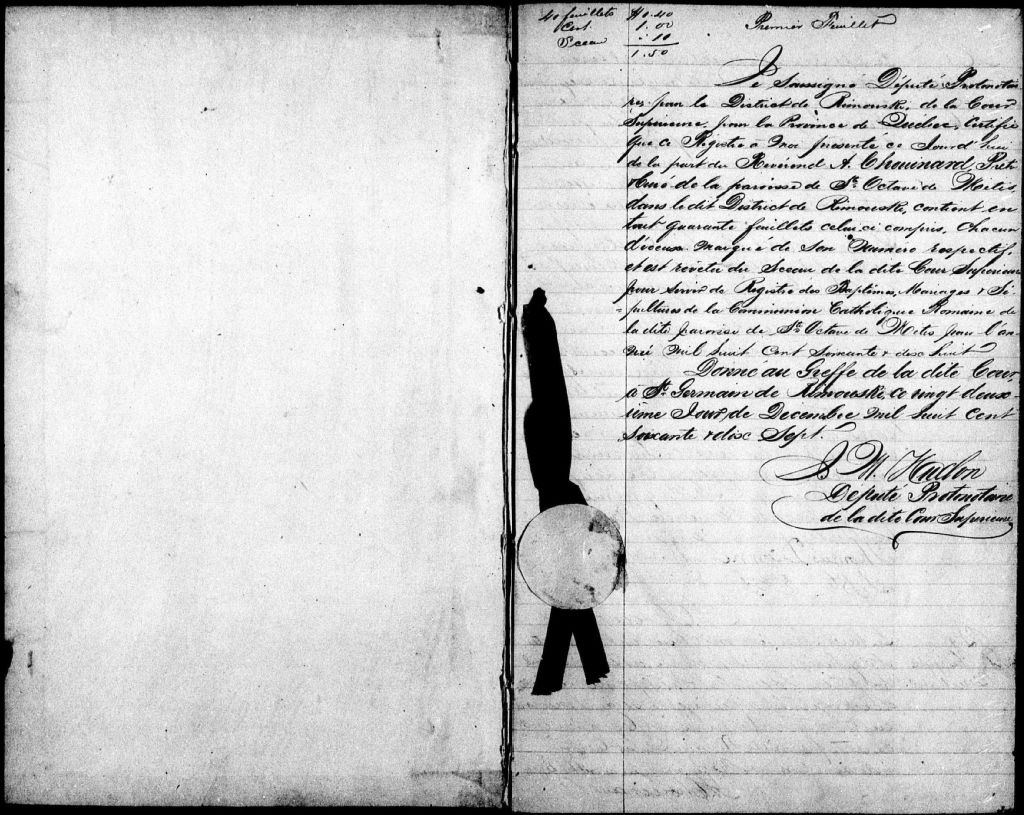 40 feuillets $0.40
Cert 1.00
Sceau .10
1.50
Premier Feuillet
Je Soussigné Député Protonotai
res pour le District de Rimouski, de la Cour
Supérieure, pour la Province de Québec, Certifie
que ce Régistre à moi présenté ce Jourd'hui
de la part du Révérend A. Chouinard, Prêtre
Curé de la paroisse de St. Octave de Métis,
dans le dit District de Rimouski, contient en
tout quarante feuillets celui ci compris, chacun
d'eceux marqué de son Numéro respectif,
et est revetu du Sceau de la dite Cour Supérieure
pour servir de Régistre des Baptêmes, Mariages & Sé-
pultures de la Communion Catholique Romaine de
la dite paroisse de St. Octave de Métis pour l'an-
née mil huit cent soixante & dix huit
Donné au Greffe de la dite Cour,
à St. Germain de Rimouski, ce vingt deux-
ième Jour de Decembre mil huit cent
soixante & dix Sept.
M. Hudon
Député Protonotaire
de la dite Cour Supérieure